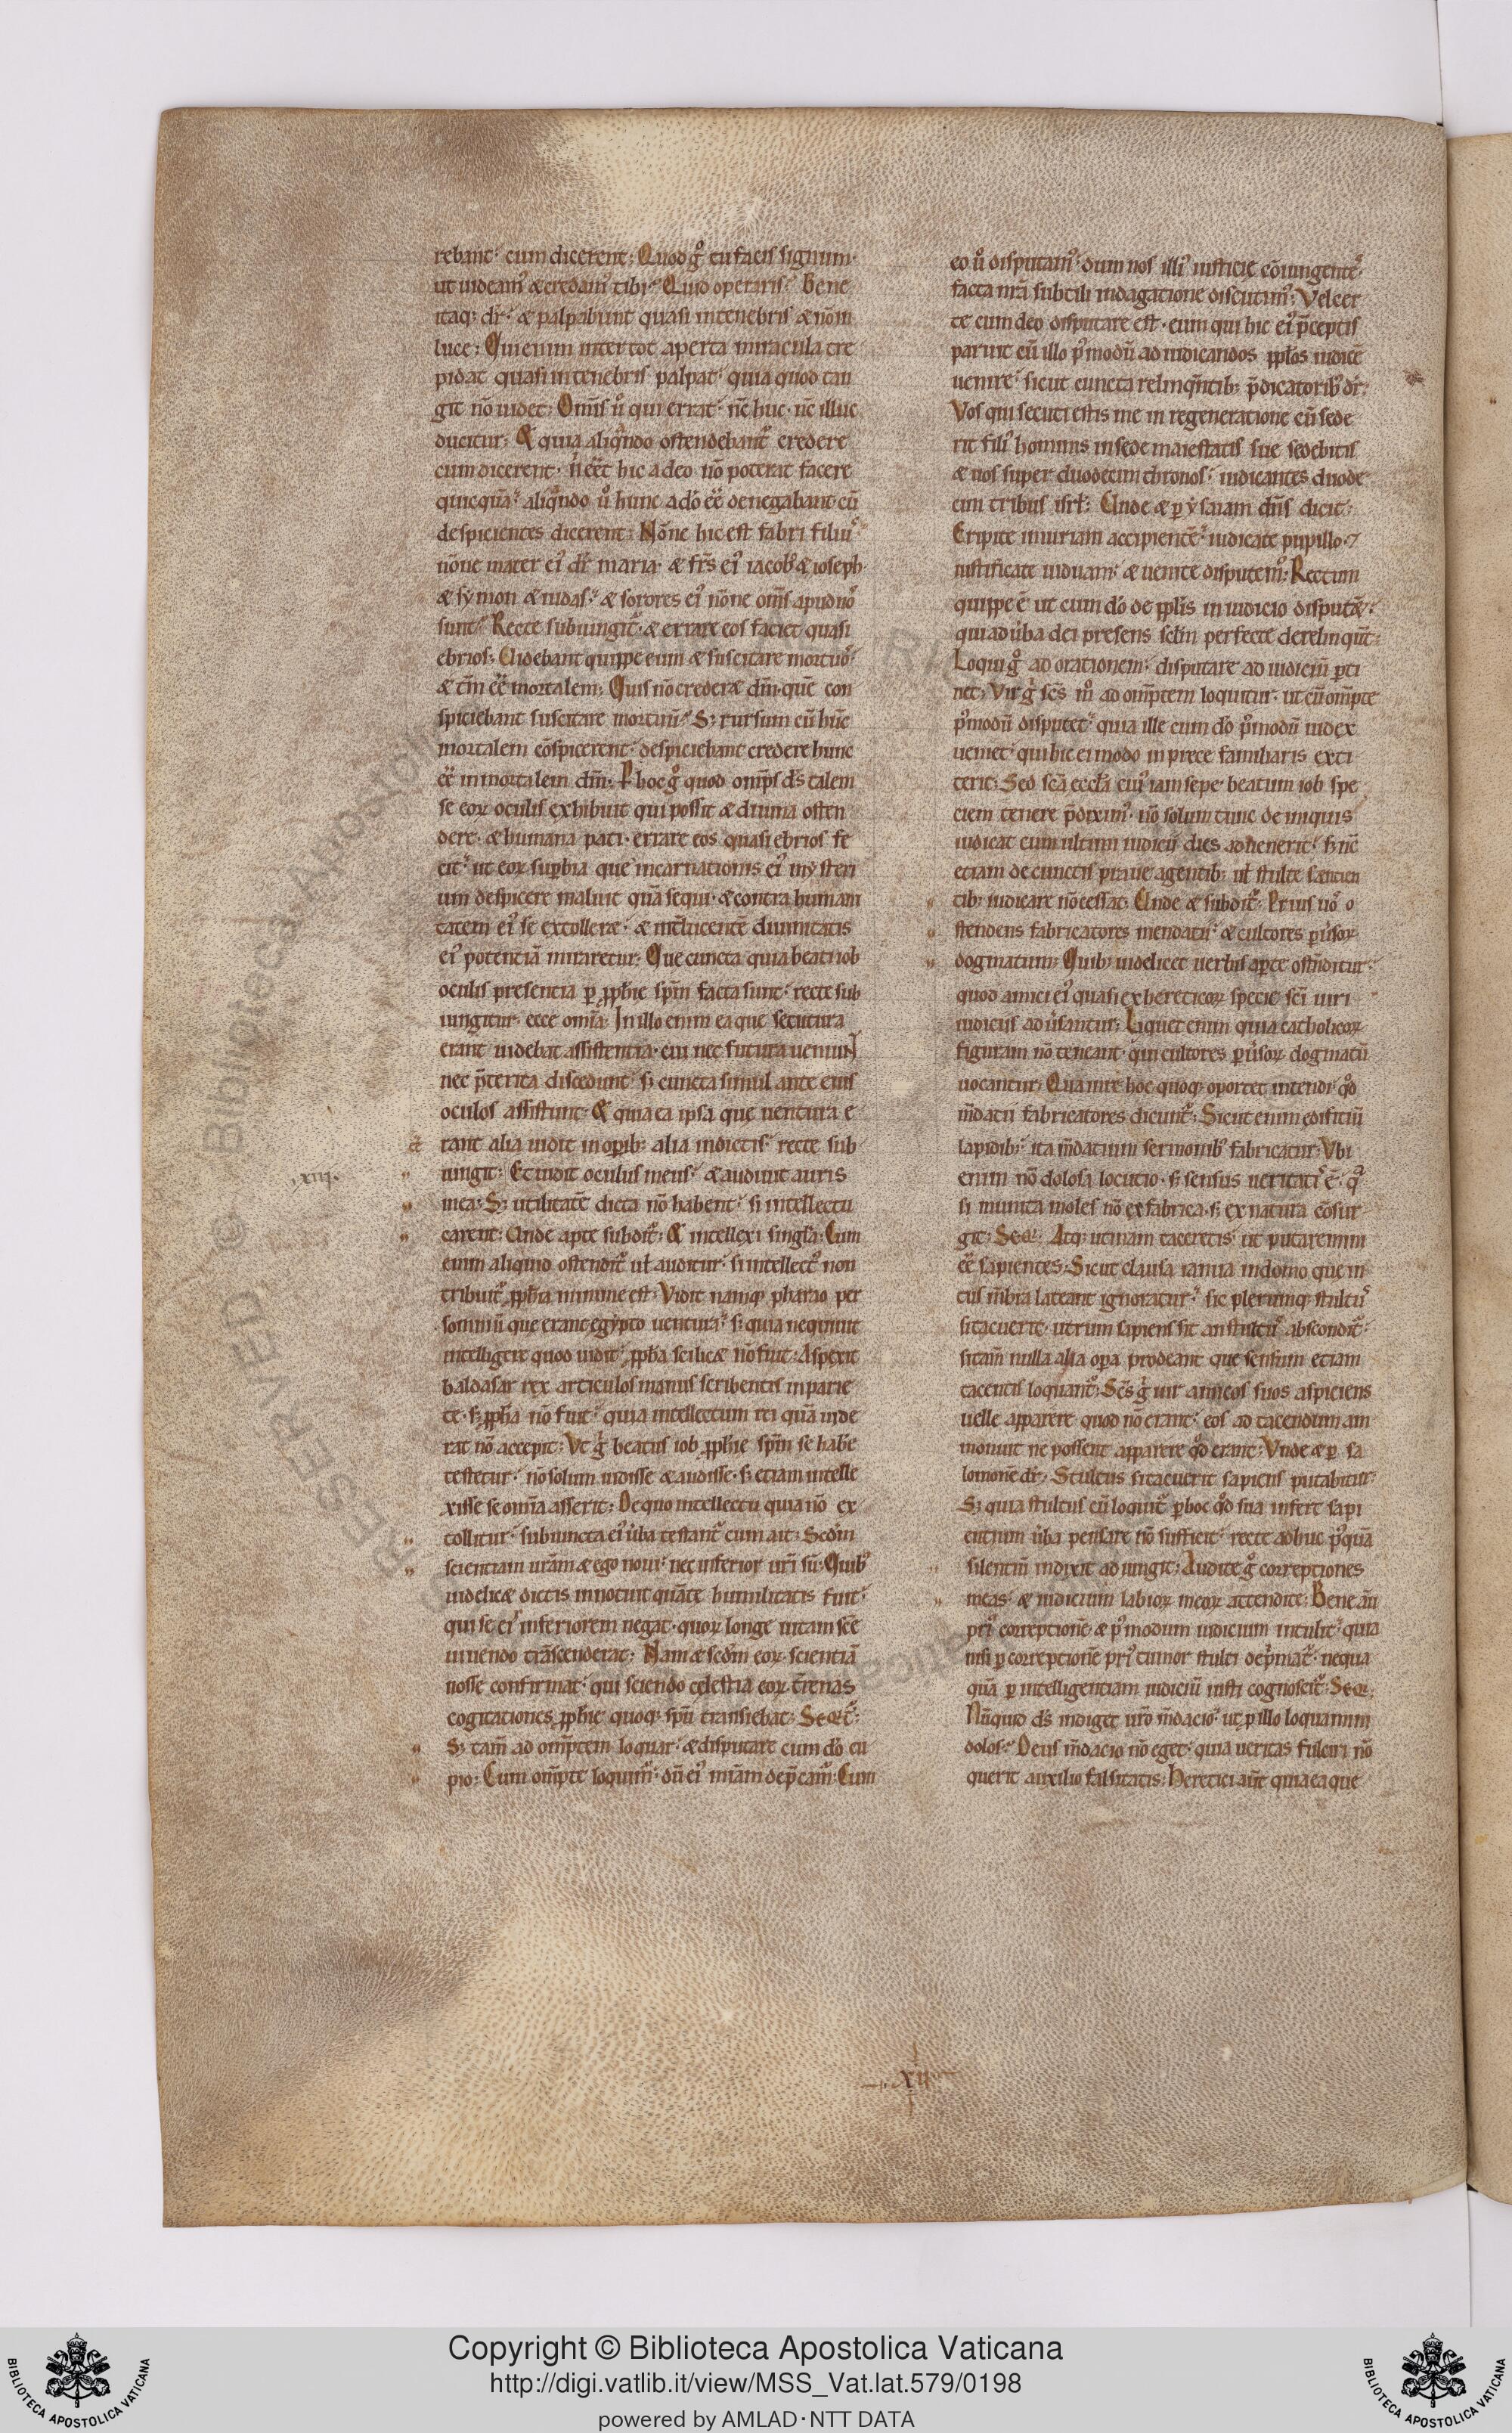 rebant· cum dicerent; Quod gͦ tu facis signum·
ut uideamꝰ & credamꝰ tibi? Quid operaris? Bene
itaq; dr̄· & palpabunt quasi in tenebris & nō in
luce; Qui enim inter tot aperta miracula tre
pidat quasi in tenebris palpat· quia quod tan
git nō uidet; Om̄s u͛ qui errat· nc̄ huc· nc̄ illuc
ducitur; & quia aliqn̄do ostendebant᷑ credere
cum dicerent· n̄ eēt hic a deo nō poterat facere
quicquā· aliqn̄do u͛ hunc a dō eē denegabant cū
despicientes dicerent; Nōne hic est fabri filiuꝰ
nōne mater eiꝰ dr̄ maria· & fr̄s eiꝰ iacobꝰ & ioseph·
& symon & iudas? & sorores eiꝰ nōne om̄s apud nos
sunt? Recte subiungit᷑· & errare eos faciet quasi
ebrios; Uidebant quippe eum & suscitare mortuos
& tm̄ eē mortalem; Quis nō crederet dm̄· quē con
spiciebant suscitare mortuū? S; rursum cū hūc
mortalem cōspicerent· despiciebant credere hunc
eē inmortalem dm̄; Ꝑ hoc gͦ quod omp̄s ds̄ talem
se eoꝝ oculis exhibuit qui possit & diuina osten
dere· & humana pati· errare eos quasi ebrios fe
cit· ut eoꝝ suꝑbia que incarnationis eiꝰ mysteri
um despicere maluit quā sequi· & contra humani
tatem eiꝰ se extolleret· & int̄lucentē diuinitatis
eiꝰ potentiā miraretur; Que cuncta quia beati iob
oculis presentia ꝑ ꝓph̄ie spm̄ facta sunt· recte sub
iungitur· ecce om̄ia; In illo enim ea que secutura
erant uidebat assistentia· cui nec futura ueniunt
nec p̄terita discedunt· s; cuncta simul ante eius
oculos assistunt· & quia ea ipsa que uentura e
rant alia uidit in oꝑib; alia in dictis· recte sub
.xiii.
iungit; Et uidit oculus meus· & audiuit auris
mea; S; utilitatē dicta nō habent· si intellectu
carent; Unde apte subdit᷑; & intellexi singl̄a; Cum
enim aliquid ostendit᷑ ul̄ auditur· si intellectꝰ non
tribuit᷑ ꝓph̄ia minime est; Vidit namq; pharao per
somniū que erant egypto uentura? s; quia nequiuit
intelligere quod uidit· ꝓph̄a scilicet nō fuit; Aspexit
baldasar rex articulos manus scribentis in parie
te· s; ꝓph̄a nō fuit· quia intellectum rei quā uide
rat nō accepit; Vt g̊ beatus iob ꝓph̄ie spm̄ se hab̄e
testetur· nō solum uidisse & audisse· s; etiam intelle
xisse se om̄ia asserit; De quo intellectu quia nō ex
tollitur· subiuncta eiꝰ u͛ba testant᷑ cum ait; Scd̄m
scientiam urām & ego noui· nec inferior urī sū; Quibꝰ
uidelicet dictis innotuit quāte humilitatis fuit·
qui se eiꝰ inferiorem negat· quoꝝ longe uitam scē
uiuendo trāscenderat; Nam & scd̄m eoꝝ scientiā
nosse confirmat· qui sciendo celestia eoꝝ t̄renas
cogitationes ꝓph̄ie quoq; spū transiebat; Seqt᷑;
S; tam̄ ad omp̄tem loquar· & disputare cum dō cu
pio; Cum omp̄te loquimꝰ· dū eiꝰ miām dep̄camꝰ; Cum
eo u͛ disputamꝰ· dum nos illiꝰ iusticie cōiungentes
facta nr̄a subtili indagatione discutimꝰ; Vel cer
te cum deo disputare est· eum qui hic eiꝰ p̄ceptis
paruit cū illo p̾modū ad iudicandos ppl̄os iudicē
uenire· sicut cuncta relinqn̄tib; p̄dicatorib; dr̄;
Vos qui secuti estis me in regeneratione cū sede
rit filiꝰ hominis in sede maiestatis sue sedebitis
& uos super duodecim thronos· iudicantes duode
cim tribus isrl̄; Unde & ꝑ ysaiam dn̄s dicit;
Eripite iniuriam accipientē· iudicate pupillo· ⁊
iustificate uiduam· & uenite disputemꝰ; Rectum
quippe ē ut cum dō de ppl̄is in iudicio disputēt·
qui ad u͛ba dei presens scl̄m perfecte derelinqūt;
Loqui gͦ ad orationem· disputare ad iudiciū ꝑti
net; Vir g̊ scs̄ mͦ ad omp̄tem loquitur· ut cū omp̄te
p̾modū disputet· quia ille cum dō p̾modū iudex
ueniet· qui hic ei modo in prece familiaris exti
terit; Sed scā eccl̄a cuiꝰ iam sepe beatum iob spe
ciem tenere p̄diximꝰ· nō solum tunc de iniquis
iudicat cum ultimi iudicii dies aduenerit· s; nc̄
etiam de cunctis praue agentib; ul̄ stulte sentien
tib; iudicare nō cessat; Unde & subdit᷑· Prius uos o
stendens fabricatores mendatii· & cultores ꝑu͛soꝝ
dogmatum; Quib; uidelicet uerbis aꝑte ostn̄ditur·
quod amici eiꝰ quasi ex hereticoꝝ specie scī uiri
iudiciis adu͛santur; Liquet enim quia catholicoꝝ
figuram nō teneant· qui cultores ꝑu͛soꝝ dogmatū
uocantur; Qua in re hoc quoq; oportet intendi· qd̊
m̄datii fabricatores dicunt᷑; Sicut enim edifitiū
lapidib;· ita m̄datium sermonibꝰ fabricatur; Vbi
enim nō dolosa locutio· s; sensus ueritatiſ ē· qꝰ
si munita moles nō ex fabrica· s; ex natura cōsur
git; Seqr· Atq; utinam taceretis· ut putaremini
eē sapientes; Sicut clausa ianua in domo que in
tus m̄bra lateant ignoratur· sic plerunq; stultꝰ
si tacuerit· utrum sapiens sit an stultꝰ abscondit᷑·
si tam̄ nulla alia oꝑa prodeant que sensum etiam
tacentis loquant᷑; Scs̄ g̊ uir amicos suos aspiciens
uelle apparere quod nō erant· eos ad tacendum am
monuit ne possent apparere qd̊ erant; Vnde & ꝑ sa
lomonē dr̄; Stultus si tacuerit sapiens putabitur·
S; quia stultus cū loquit᷑ ꝑ hoc qd̊ sua infert sapi
entium u͛ba pensare nō sufficit· recte adhuc pꝰquā
silentiū indixit adiungit; Audite gͦ correptiones
meas· & iudicium labioꝝ meoꝝ attendite; Bene aū
priꝰ correptionē & pꝰmodum iudicium intulit· quia
nisi ꝑ correptionē priꝰ tumor stulti dep̄mat᷑· nequa
quā ꝑ intelligentiam iudiciū iusti cognoscit᷑; Seqr;
Nūquid ds̄ indiget uro m̄dacio· ut ꝑ illo loquamini
dolos? Deus m̄dacio nō eget· quia ueritas fulciri nō
querit auxilio falsitatis; Heretici aūt quia ea que
xii
Copyright © Biblioteca Apostolica Vaticana
http://digi.vatlib.it/view/MSS_Vat.lat.579/0198
powered by AMLAD·NTT DATA
BIBLIOTECA APOSTOLICA VATICANA
BIBLIOTECA APOSTOLICA VATICANA